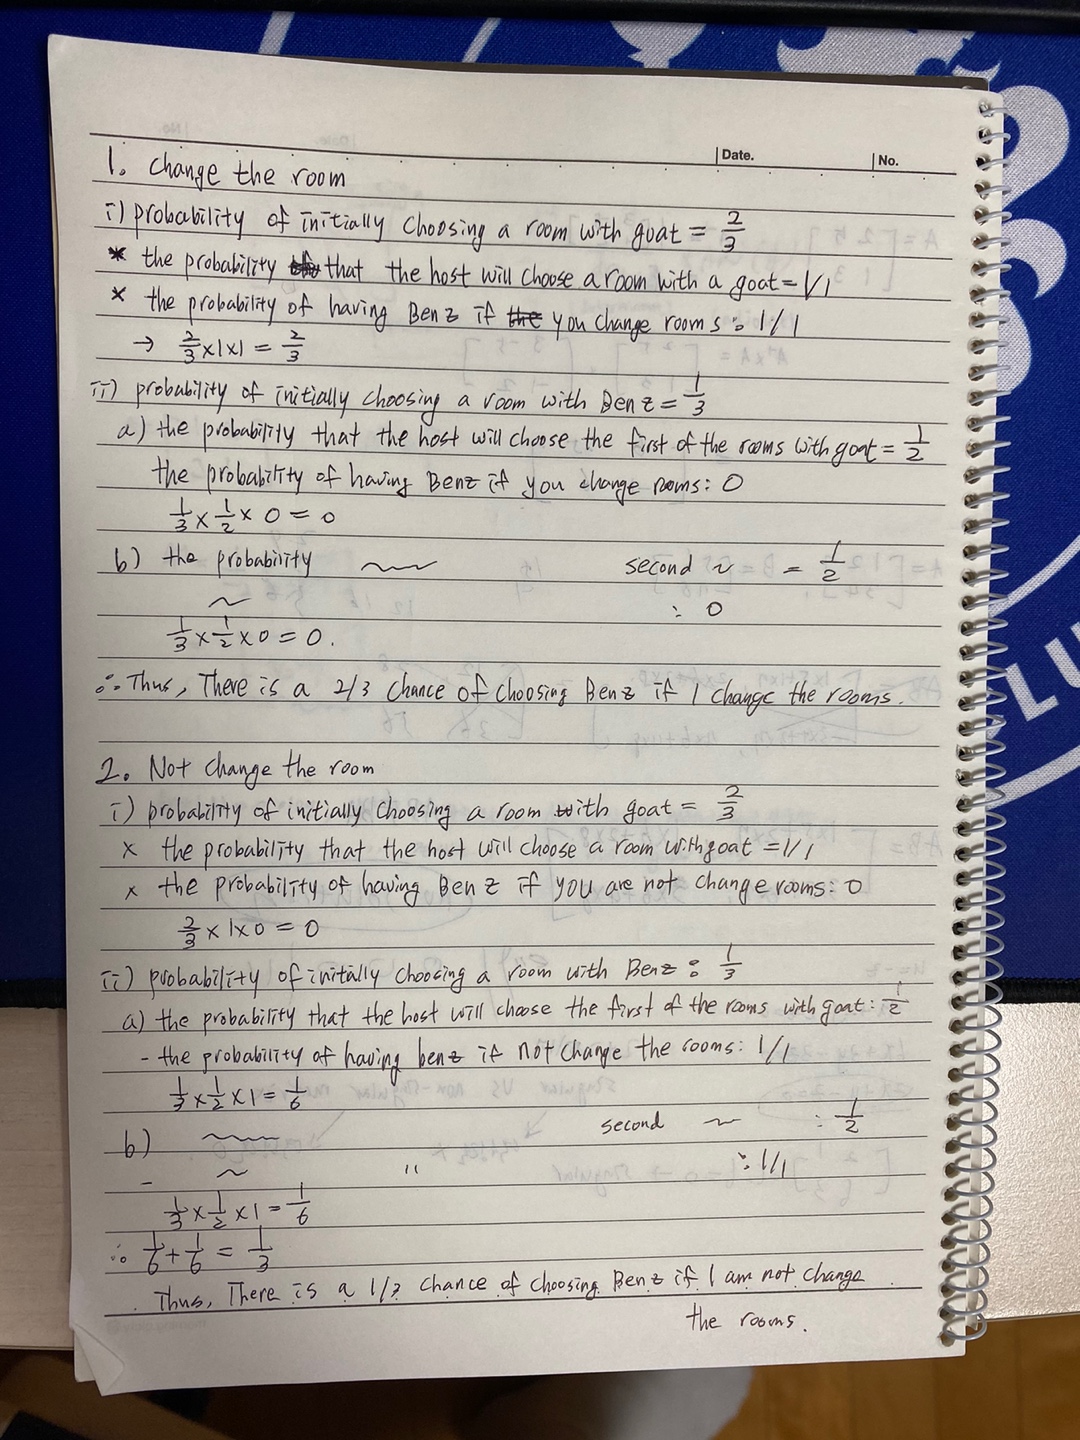 Date.
No.
1. Change the room
i) probability of initially choosing a room with goat = 2/3
* the probability that the host will choose a room with a goat = 1/1
× the probability of having Benz if you change rooms : 1/1
→ 2/3 × 1 × 1 = 2/3
ii) probability of initially choosing a room with Benz = 1/3
a) the probability that the host will choose the first of the rooms with goat = 1/2
the probability of having Benz if you change rooms : 0
1/3 × 1/2 × 0 = 0
b) the probability ~~ second ~ = 1/2
~ : 0
1/3 × 1/2 × 0 = 0.
∴ Thus, There is a 2/3 chance of choosing Benz if I change the rooms.
2. Not change the room
i) probability of initially choosing a room with goat = 2/3
× the probability that the host will choose a room with goat = 1/1
× the probability of having Benz if you are not change rooms : 0
2/3 × 1 × 0 = 0
ii) probability of initally choosing a room with Benz : 1/3
a) the probability that the host will choose the first of the rooms with goat : 1/2
- the probability of having benz if not change the rooms : 1/1
1/3 × 1/2 × 1 = 1/6
b) ~~ second ~ : 1/2
- ~ " : 1/1
1/3 × 1/2 × 1 = 1/6
∴ 1/6 + 1/6 = 1/3
Thus, There is a 1/3 chance of choosing Benz if I am not change
the rooms.
LU